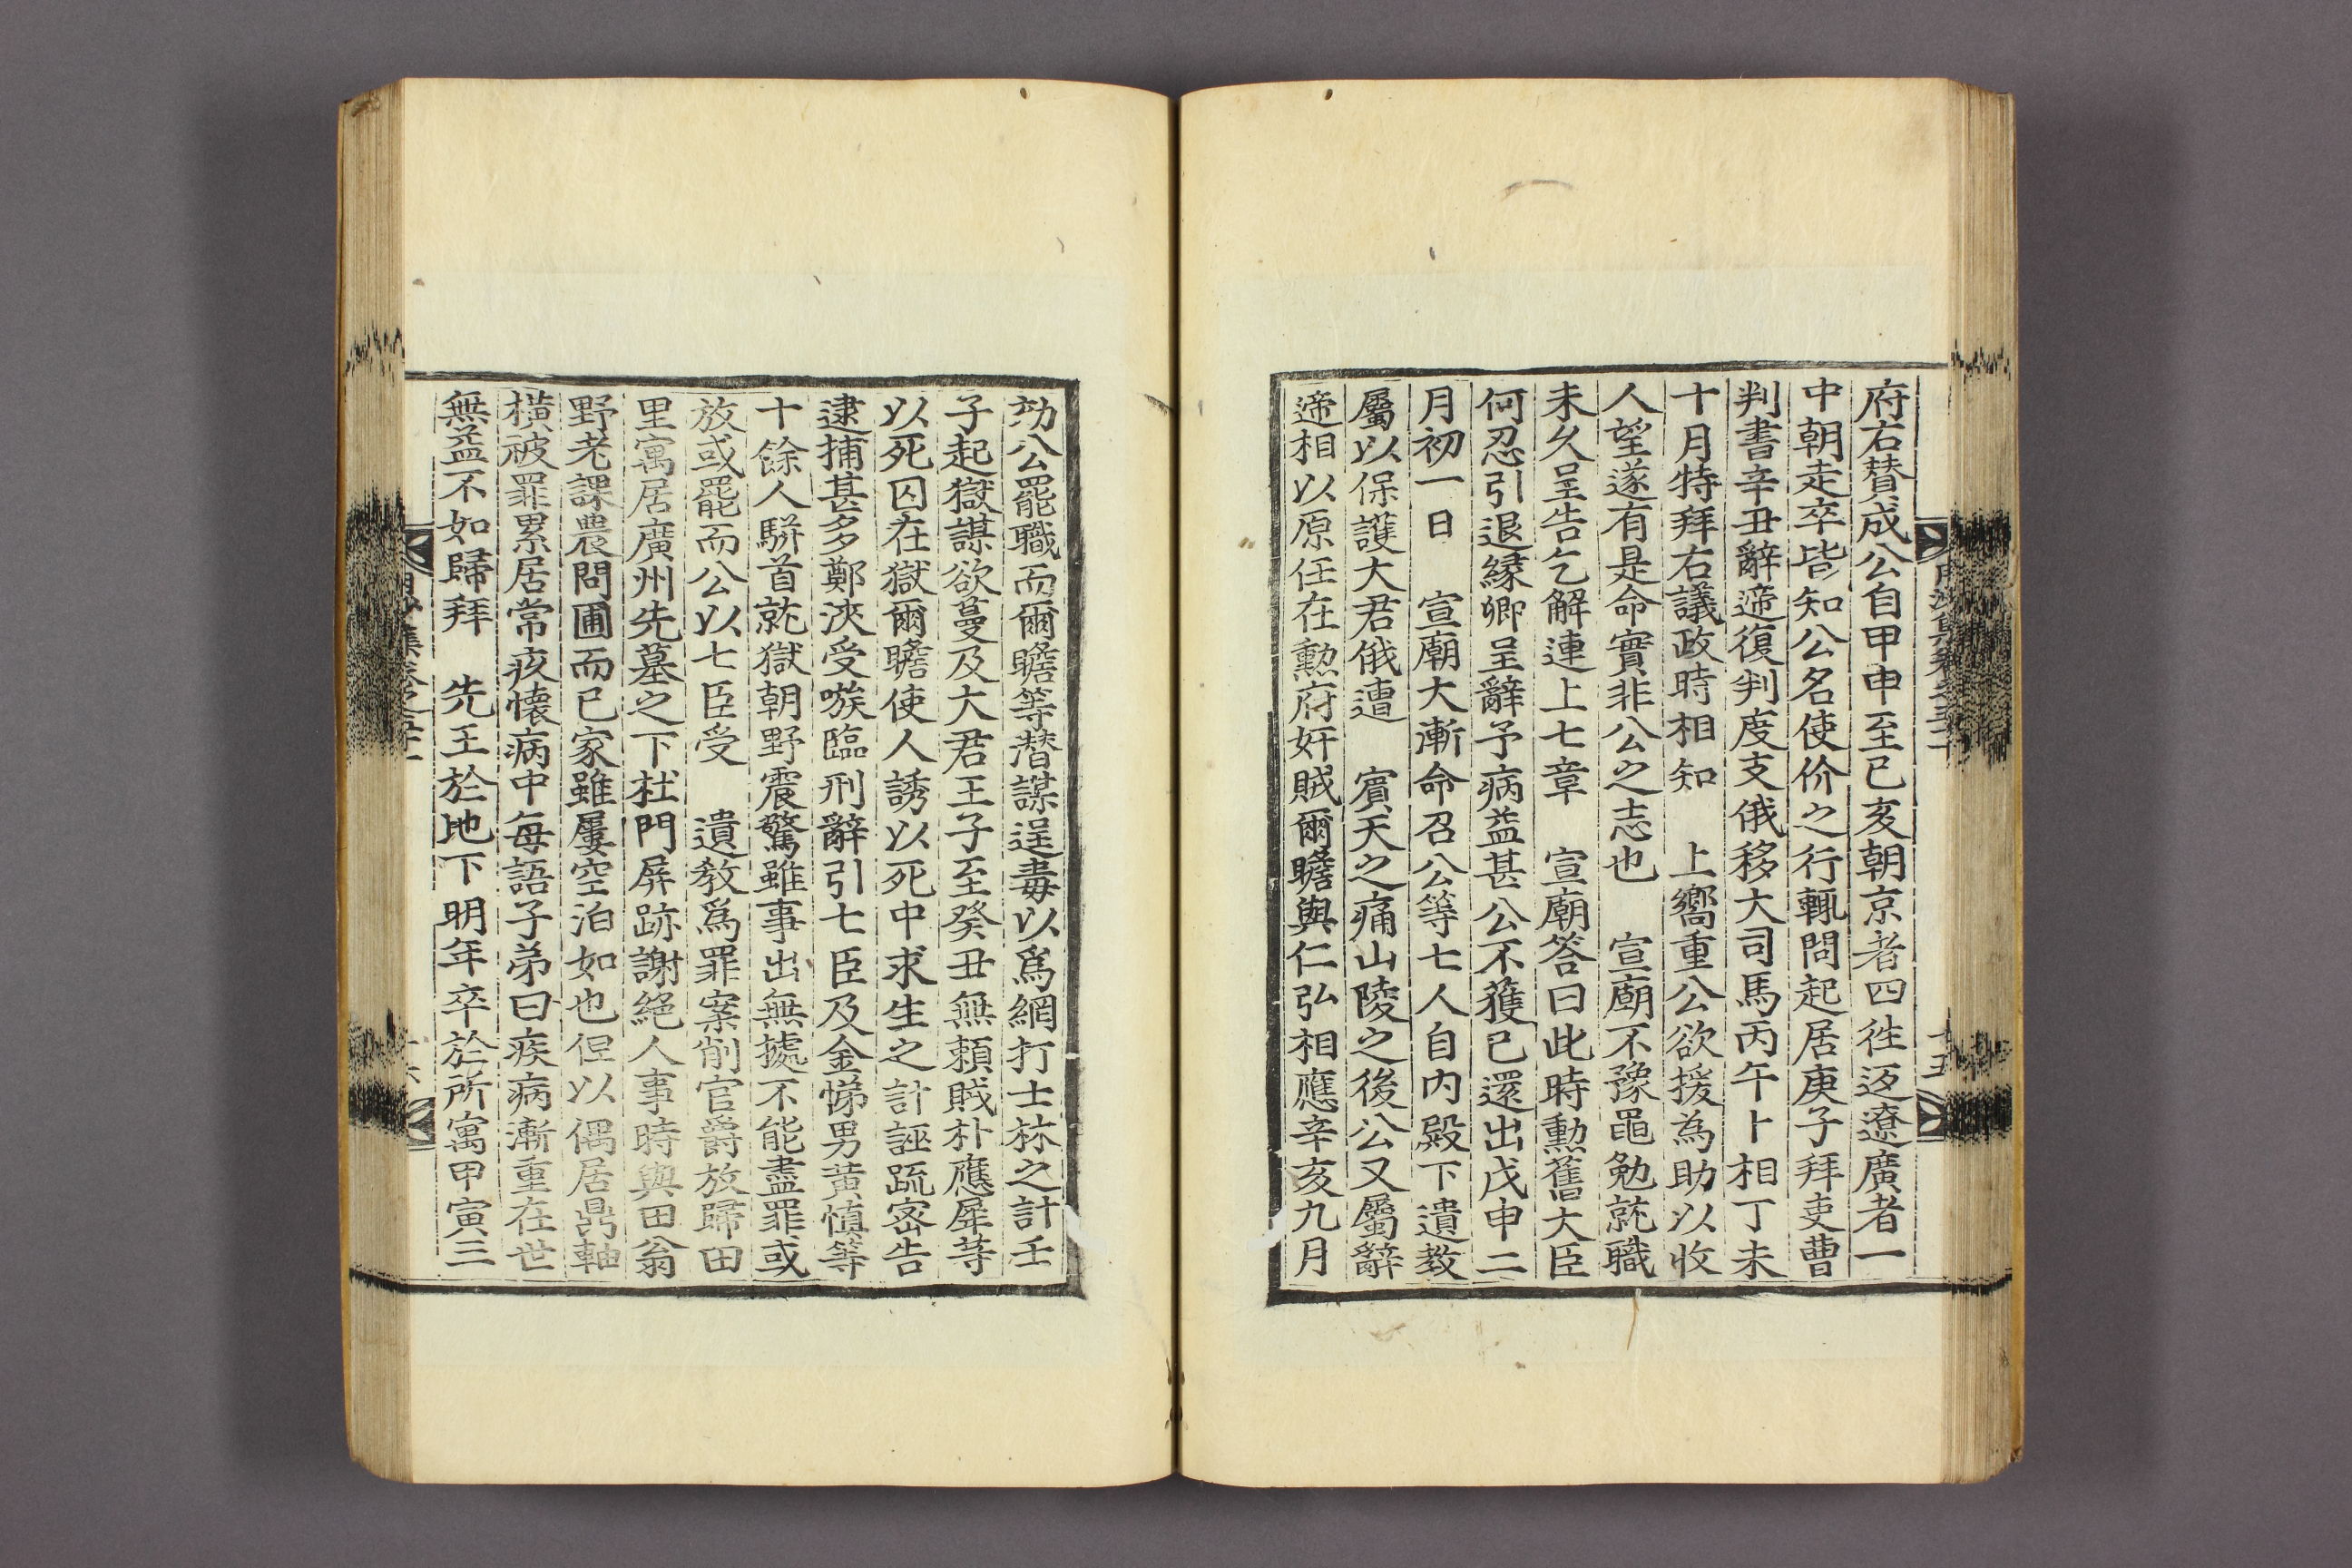 府右贊成公自甲申至已亥朝京者四徃返遼廣者一
中朝走卒皆知公名使价之行輒問起居庚子拜吏曹
判書辛丑辭遞復判度支俄移大司馬丙午卜相丁未
十月特拜右議政時相知　上嚮重公欲援為助以收
人望遂有是命實非公之志也　宣廟不豫黽勉就職
未久呈告乞解連上七章　宣廟答曰此時勳舊大臣
何忍引退縁卿呈辭予病益甚公不獲已還出戊申二
月初一日　宣廟大漸命召公等七人自内殿下遺教
屬以保護大君俄遭　賓天之痛山陵之後公又屬辭
遞相以原任在勳府奸賊爾瞻與仁弘相應辛亥九月
劾公罷職而爾瞻等潜謀逞毒以爲網打士林之計壬
子起獄謀欲蔓及大君王子至癸丑無頼賊朴應犀等
以死囚在獄爾瞻使人誘以死中求生之計誣䟽宻告
逮捕甚多鄭浹受嗾臨刑辭引七臣及金悌男黄愼等
十餘人駢首就獄朝野震驚雖事出無據不能盡罪或
放或罷而公以七臣受　遺敎爲罪案削官爵放歸田
里寓居廣州先墓之下杜門屏跡謝絕人事時與田翁
野老課農問圃而已家雖屢空泊如也但以偶居鼎軸
橫被罪累居常疚懐病中每語子弟曰疾病漸重在世
無益不如歸拜　先王於地下明年卒於所寓甲寅三